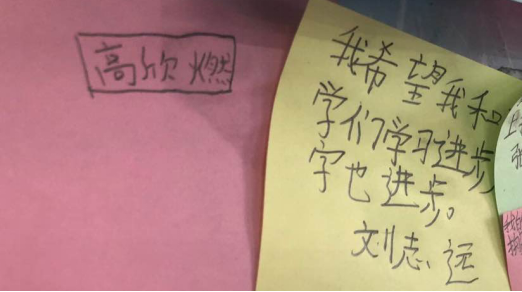 高欣燃
我希望我和
学们学习进步
字也进步。
刘志远